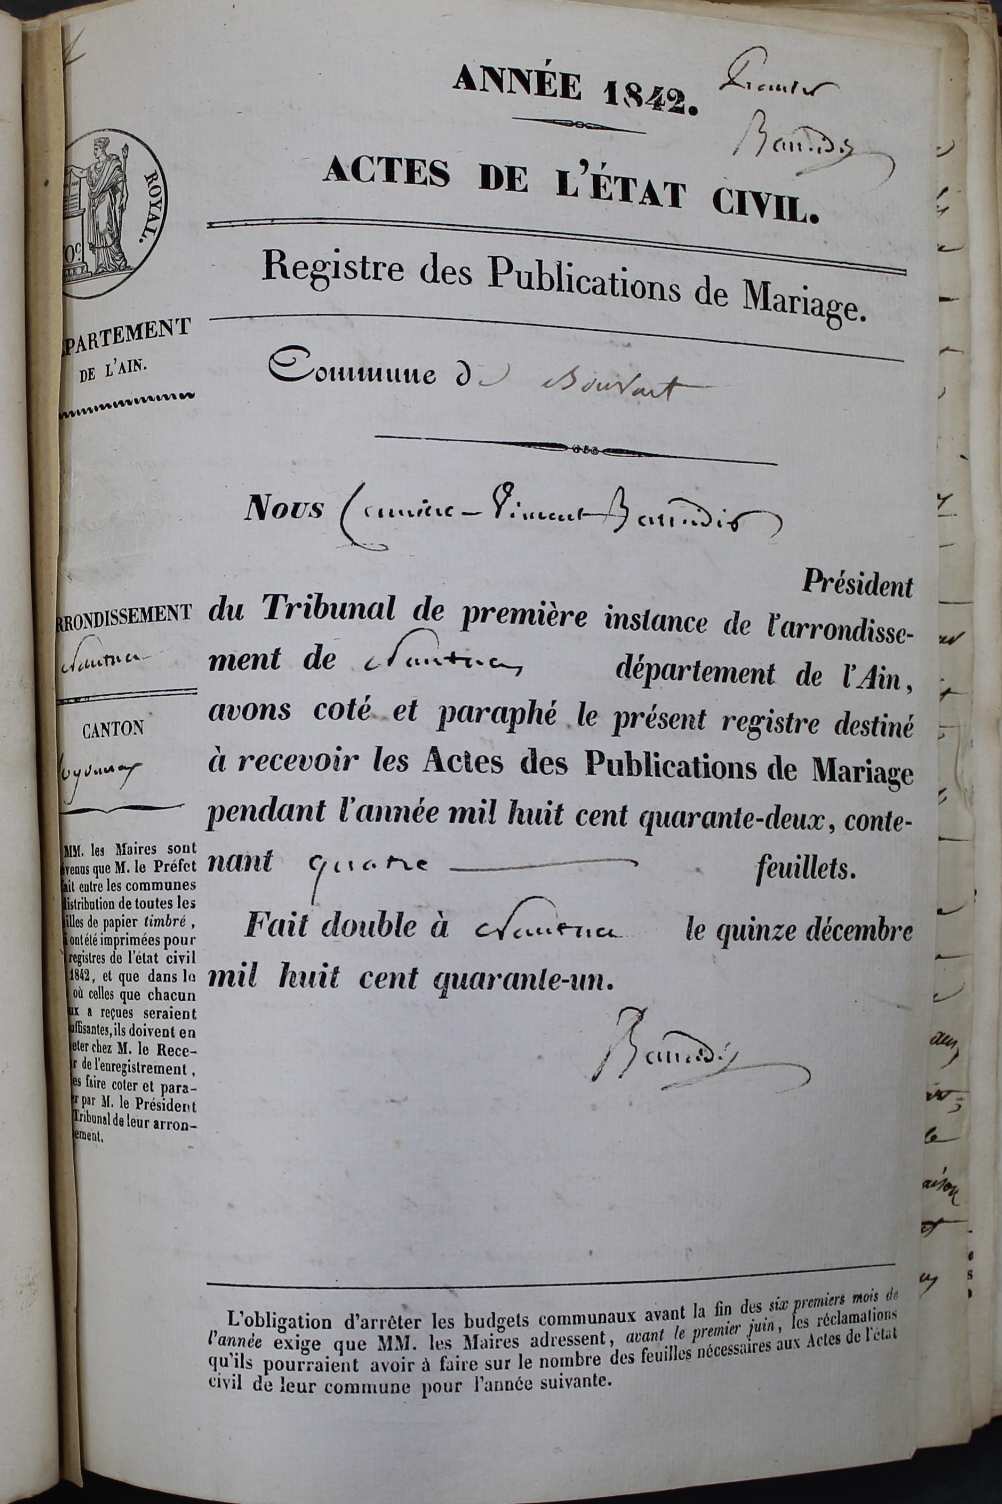 ANNÉE 1842.
Premier
Baudin
ACTES DE L'ÉTAT CIVIL.
Registre des Publications de Mariage.
Commune de Bouvent
Nous Vincent
Président
du Tribunal de première instance de l'arrondisse-
ment de Nantua département de l'Ain,
avons coté et paraphé le présent registre destiné
à recevoir les Actes des Publications de Mariage
pendant l'année mil huit cent quarante-deux, conte-
nant quatre feuillets.
Fait double à Nantua le quinze décembre
mil huit cent quarante-un.
L'obligation d'arrêter les budgets communaux avant la fin des six premiers mois de
l'année exige que MM. les Maires adressent, avant le premier juin, les réclamations
qu'ils pourraient avoir à faire sur le nombre des feuilles nécessaires aux Actes de l'état
civil de leur commune pour l'année suivante.
ROYAL.
0c
PARTEMENT
DE L'AIN.
RRONDISSEMENT
Nantua
CANTON
oyonnax
MM. les Maires sont
venus que M. le Préfet
ait entre les communes
istribution de toutes les
illes de papier timbré,
ont été imprimées pour
registres de l'état civil
1842, et que dans le
où celles que chacun
ux a reçues seraient
uffisantes, ils doivent en
eter chez M. le Rece-
r de l'enregistrement,
es faire coter et para-
r par M. le Président
Tribunal de leur arron-
ement.